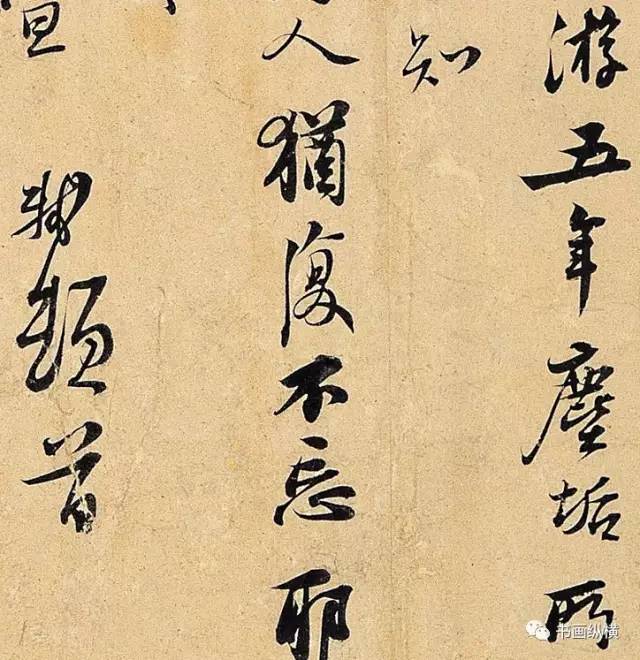 游五年塵垢所
知
人猶復不忘耶
宣
軾頓首
书画纵横